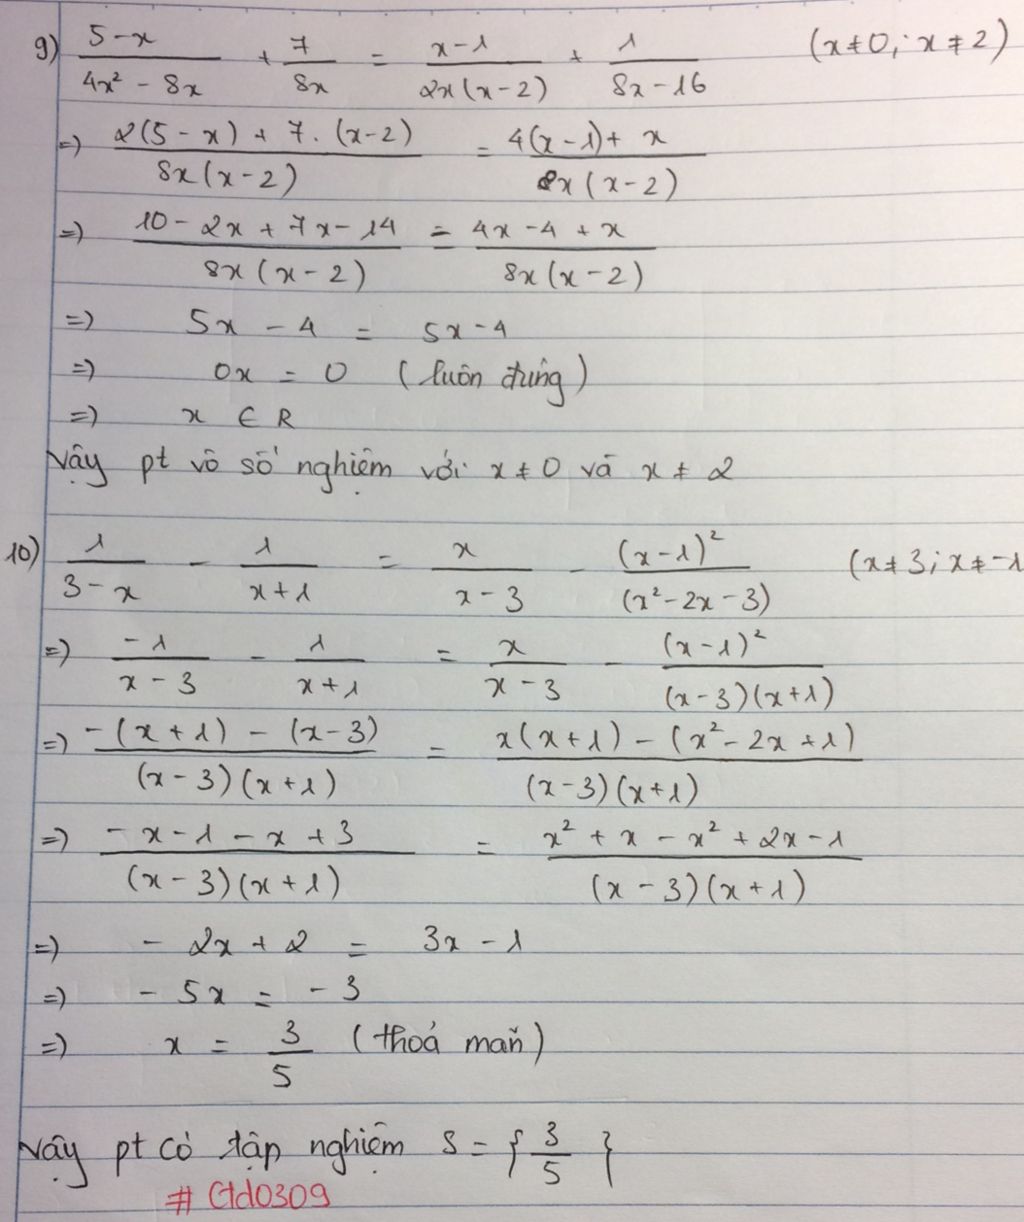 9) (5-x)/(4x² - 8x) + 7/(8x) = (x-1)/(2x(x-2)) + 1/(8x-16) (x≠0; x≠2)
=) (2(5-x) + 7.(x-2))/(8x(x-2)) = (4(x-1)+ x)/(8x(x-2))
=) (10 - 2x + 7x - 14)/(8x(x-2)) = (4x - 4 + x)/(8x(x-2))
=) 5x - 4 = 5x - 4
=) 0x = 0 (luôn đúng)
=) x ∈ R
Vậy pt vô số nghiệm với x≠0 và x≠2
10) 1/(3-x) - 1/(x+1) = x/(x-3) - (x-1)²/(x²-2x-3) (x≠3; x≠-1
=) -1/(x-3) - 1/(x+1) = x/(x-3) - (x-1)²/((x-3)(x+1))
=) (-(x+1) - (x-3))/((x-3)(x+1)) = (x(x+1) - (x²-2x+1))/((x-3)(x+1))
=) (-x-1-x+3)/((x-3)(x+1)) = (x²+x-x²+2x-1)/((x-3)(x+1))
=) -2x+2 = 3x-1
=) -5x = -3
=) x = 3/5 (thoả mãn)
Vậy pt có tập nghiệm S = {3/5}
# Ctd0309